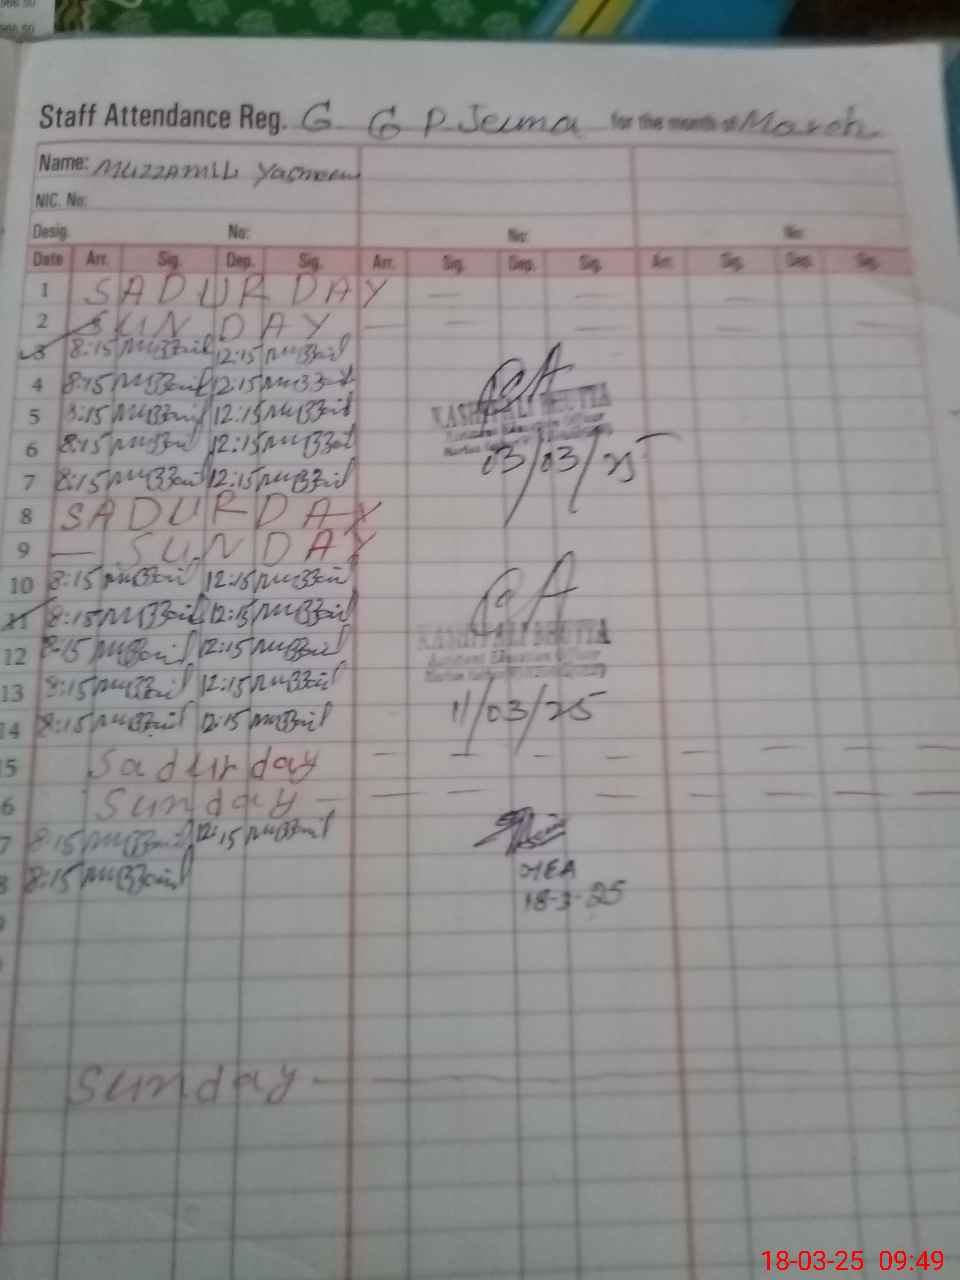 966.50
966.50
Staff Attendance Reg. G G P Jeuma for the month of March
Name: MUZZAMIL Yasmeen
NIC. No:
Desig. No: No: No:
Date Arr. Sig. Dep. Sig. Arr. Sig. Dep. Sig. Arr. Sig. Dep. Sig.
1 SADURDAY
2 SUNDAY
3 8:15 muzzamil 12:15 muzzamil
4 8:15 muzzamil 12:15 muzzamil
5 8:15 muzzamil 12:15 muzzamil
KASHIF ALI BHUTTA
Assistant Education Officer
6 8:15 muzzamil 12:15 muzzamil
03/03/25
7 8:15 muzzamil 12:15 muzzamil
8 SADURDAY
9 SUNDAY
10 8:15 muzzamil 12:15 muzzamil
11 8:15 muzzamil 12:15 muzzamil
KASHIF ALI BHUTTA
12 8:15 muzzamil 12:15 muzzamil
Assistant Education Officer
13 8:15 muzzamil 12:15 muzzamil
14 8:15 muzzamil 12:15 muzzamil
11/03/25
5 Sadurday
6 Sunday
7 8:15 muzzamil 12:15 muzzamil
8 8:15 muzzamil
MEA
18-3-25
9
Sunday
18-03-25 09:49